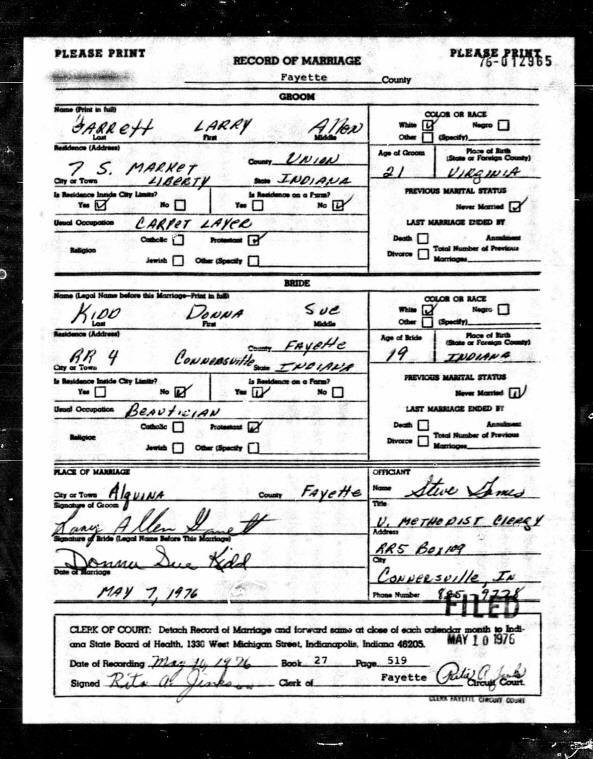 PLEASE PRINT
PLEASE PRINT
76-012965
RECORD OF MARRIAGE
Fayette County
GROOM
Name (Print in full)
GARRETT LARRY Allen
Last First Middle
COLOR OR RACE
White ☑ Negro ☐
Other ☐ (Specify)
Residence (Address)
7 S. MARKET County UNION
City or Town LIBERTY State INDIANA
Age of Groom Place of Birth
(State or Foreign County)
21 VIRGINIA
Is Residence Inside City Limits? Is Residence on a Farm?
Yes ☑ No ☐ Yes ☐ No ☑
PREVIOUS MARITAL STATUS
Never Married ☑
Usual Occupation CARPET LAYER
LAST MARRIAGE ENDED BY
Religion
Catholic ☐ Protestant ☑
Jewish ☐ Other (Specify ☐
Death ☐ Annulment
Divorce ☐ Total Number of Previous
Marriages
BRIDE
Name (Legal Name before this Marriage-Print in full)
KIDD DONNA SUE
Last First Middle
COLOR OR RACE
White ☑ Negro ☐
Other ☐ (Specify)
Residence (Address)
RR 4 Connersville County FAYETTE
City or Town State INDIANA
Age of Bride Place of Birth
(State or Foreign County)
19 INDIANA
Is Residence Inside City Limits? Is Residence on a Farm?
Yes ☐ No ☑ Yes ☑ No ☐
PREVIOUS MARITAL STATUS
Never Married ☑
Usual Occupation BEAUTICIAN
LAST MARRIAGE ENDED BY
Religion
Catholic ☐ Protestant ☑
Jewish ☐ Other (Specify ☐
Death ☐ Annulment
Divorce ☐ Total Number of Previous
Marriages
PLACE OF MARRIAGE
City or Town AlQUINA County FAYETTE
Signature of Groom
Larry Allen Garrett
Signature of Bride (Legal Name Before This Marriage)
Donna Sue Kidd
Date of Marriage
MAY 7, 1976
OFFICIANT
Name Steve James
Title
U. METHODIST CLERGY
Address
RR5 Box 109
City
CONNERSVILLE, IN
Phone Number
FILED
MAY 10 1976
CLERK OF COURT: Detach Record of Marriage and forward same at close of each calendar month to Indi-
ana State Board of Health, 1330 West Michigan Street, Indianapolis, Indiana 46205.
Date of Recording May 10, 1976 Book 27 Page 519
Signed Rita A. Jinks Clerk of Fayette Circuit Court.
CLERK FAYETTE CIRCUIT COURT